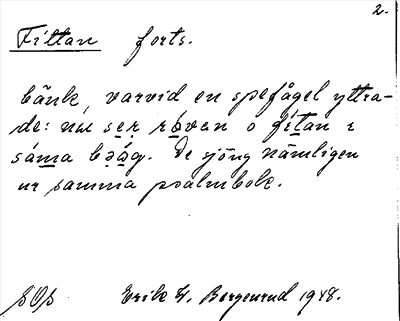 2.
Fittan forts.
bänk, varvid en spefågel yttra-
de: nu ser rövan o fitan i
sáma bɔ̀ág. De sjöng nämligen
ur samma psalmbok.
SOS Erik H. Borgenrud 1948.